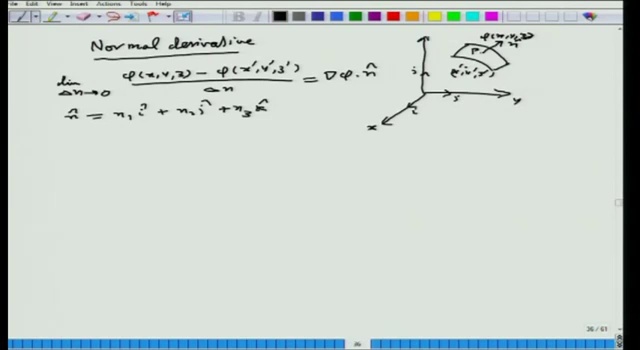 File Edit View Insert Actions Tools Help
Normal derivative
lim Δn→0 φ(x,y,z) − φ(x',y',z') / Δn = ∇φ·n̂
n̂ = n₁ î + n₂ ĵ + n₃ k̂
φ(x,y,z)
P n̂
(x',y',z')
j
y
i
x
36 / 61
36